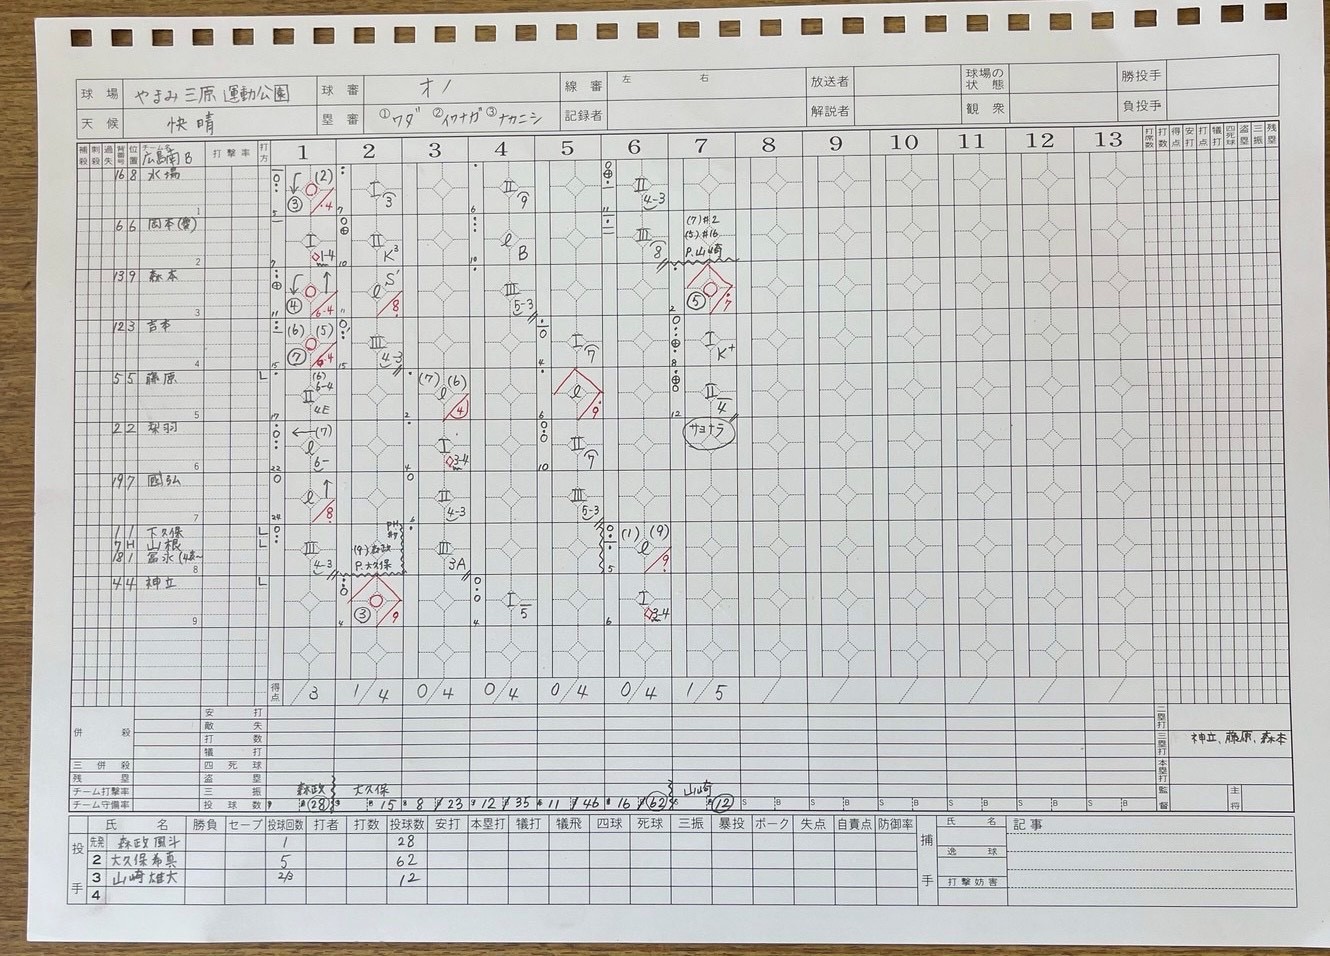 球場 やまみ三原運動公園 球審 オノ 線審 左 右 放送者 球場の状態 勝投手
天候 快晴 塁審 ①ワダ ②イワナガ ③ナカニシ 記録者 解説者 観衆 負投手
補殺 刺殺 過失 背番号 位置 チーム名 広島南B 打撃率 打方 1 2 3 4 5 6 7 8 9 10 11 12 13 打席数 打数 得点 安打 打点 犠打 四死球 盗塁 三振 残塁
16 8 水場 1
6 6 岡本(寮) 2
13 9 森本 3
12 3 吉本 4
5 5 藤原 L 5
2 2 梨羽 6
19 7 國弘 7
1 1 下久保 L
7 H 山根 L
18 1 冨永 8
4 4 神立 L 9
③ (2) 4
I 3
II 9
II 4-3
I 1-4
II K3
l B
III 8
(7)#2
(5)#16
P.山崎
④ 6-4
l S' 8
III 5-3
⑤ 7
(6) (5) ⑦ 4
III 4-3
I 7
I K+
(6) 6-4 II 4E
(7) (6) l ④
l 9
II 4
(7) l 6-
I 3-4
II 7
サヨナラ
l 8
II 4-3
III 5-3
III 4-3
PH #7
(9)森政
P.大久保
III 3A
(1) (9) l 9
③ 9
I 5
I 3-4
得点 /3 1/4 0/4 0/4 0/4 0/4 1/5
併殺 安打
敵失
打数
犠打
三併殺 四死球
残塁 盗塁
チーム打撃率 三振 森政 大久保 山崎
チーム守備率 投球数 28 15 8 23 12 35 11 46 16 62 12
二塁打
三塁打 神立、藤原、森本
本塁打
監督 主将
投手 氏名 勝負 セーブ 投球回数 打者 打数 投球数 安打 本塁打 犠打 犠飛 四球 死球 三振 暴投 ボーク 失点 自責点 防御率 捕手 氏名 記事
先発 森政風斗 1 28
2 大久保希真 5 62 逸球
3 山崎雄大 2/3 12 打撃妨害
4